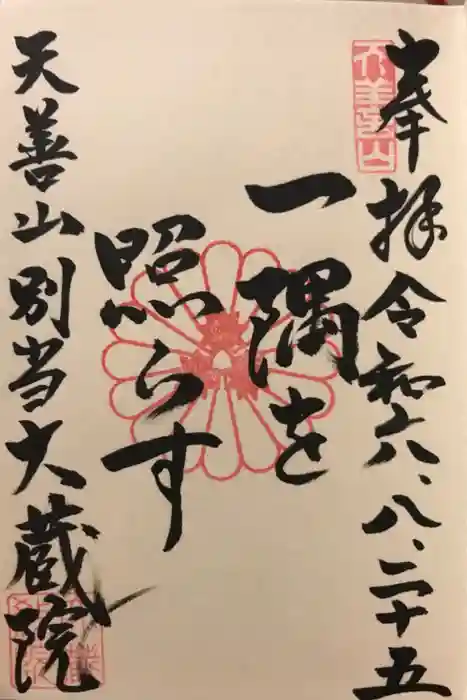 奉拝 令和六、八、二十五
一隅を
照らす
天善山別当大蔵院